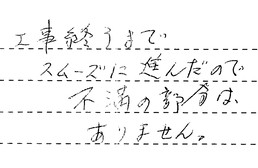 工事終うまで
スムーズに進んだので
不満の部分は、
ありません。